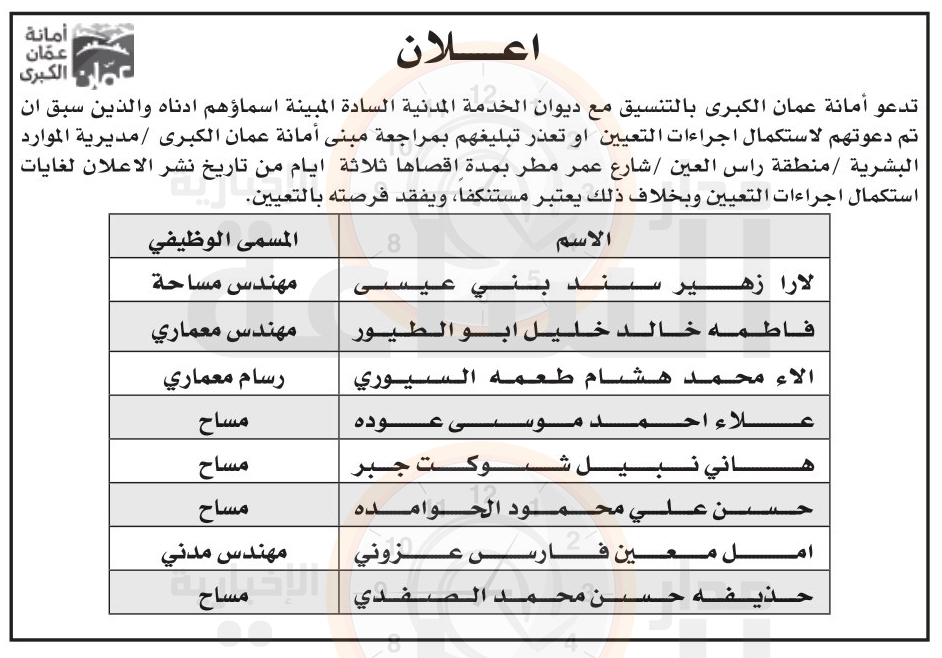 أمانة
عمّان
الكبرى
عمّان
اعـــــلان
تدعو أمانة عمان الكبرى بالتنسيق مع ديوان الخدمة المدنية السادة المبينة اسماؤهم ادناه والذين سبق ان
تم دعوتهم لاستكمال اجراءات التعيين او تعذر تبليغهم بمراجعة مبنى أمانة عمان الكبرى /مديرية الموارد
البشرية /منطقة راس العين /شارع عمر مطر بمدة اقصاها ثلاثة ايام من تاريخ نشر الاعلان لغايات
استكمال اجراءات التعيين وبخلاف ذلك يعتبر مستنكفاً، ويفقد فرصته بالتعيين.
الاسم المسمى الوظيفي
لارا زهير سند بني عيسى مهندس مساحة
فاطمه خالد خليل ابو الطيور مهندس معماري
الاء محمد هشام طعمه السيوري رسام معماري
علاء احمد موسى عوده مساح
هاني نبيل شوكت جبر مساح
حسن علي محمود الحوامده مساح
امل معين فارس عزوني مهندس مدني
حذيفه حسن محمد الصفدي مساح
مدار
الساعة
الإخبارية